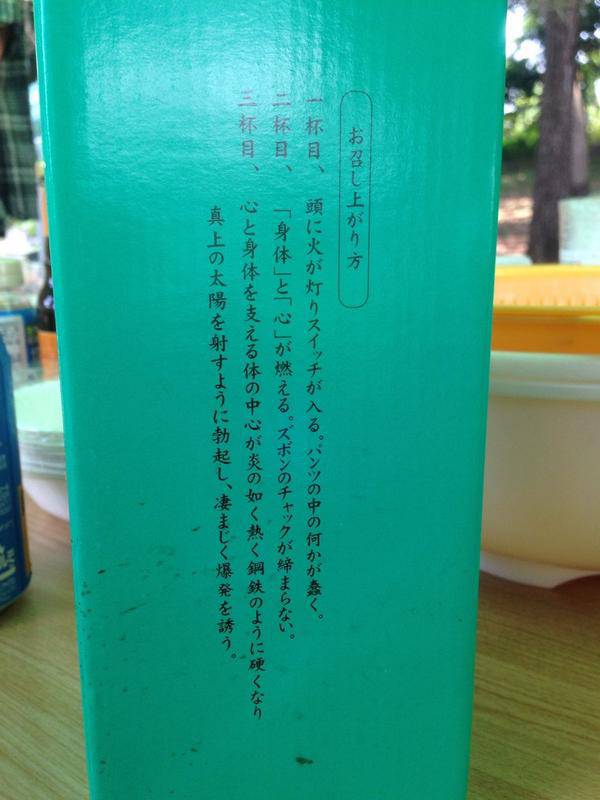 お召し上がり方
一杯目、頭に火が灯りスイッチが入る。パンツの中の何かが蠢く。
二杯目、「身体」と「心」が燃える。ズボンのチャックが締まらない。
三杯目、心と身体を支える体の中心が炎の如く熱く鋼鉄のように硬くなり
真上の太陽を射すように勃起し、凄まじく爆発を誘う。